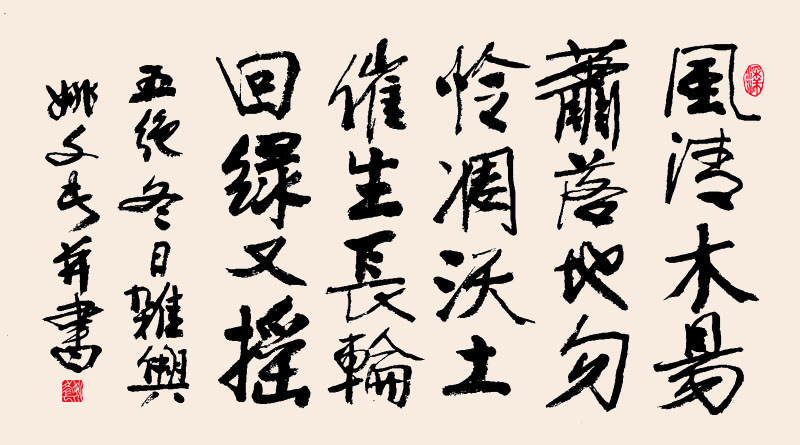 風清木易
蕭落地勿
怜凋沃土
催生長輪
回綠又摇
五絕冬日雜興
姚文長并書